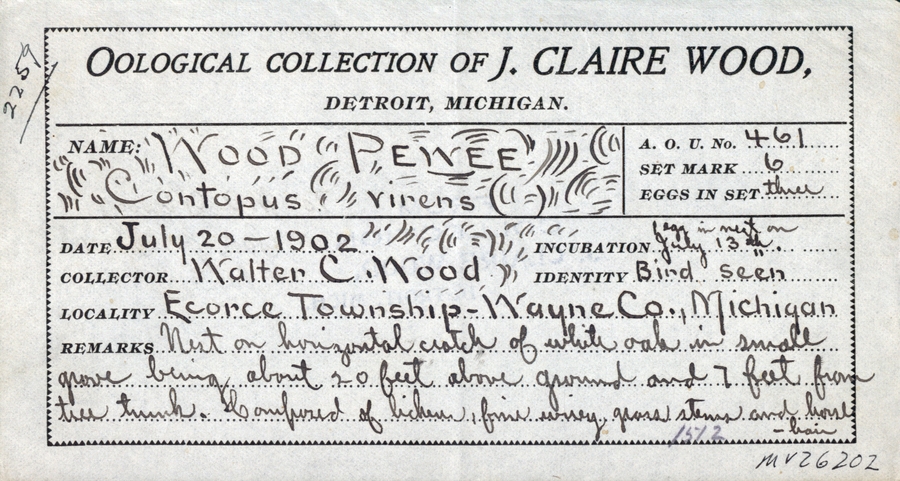 2259
OOLOGICAL COLLECTION OF J. CLAIRE WOOD,
DETROIT, MICHIGAN.
NAME: WOOD PEWEE
Contopus virens
A. O. U. No. 461
SET MARK 6
EGGS IN SET three
DATE July 20-1902
INCUBATION egg in nest on
July 13th.
COLLECTOR Walter C. Wood
IDENTITY Bird seen
LOCALITY Ecorce Township-Wayne Co., Michigan
REMARKS Nest on horizontal crotch of white oak in small
grove being about 20 feet above ground and 7 feet from
tree trunk. Composed of lichens, fine wirey grass stems and horse
-hair
1512
MV26202